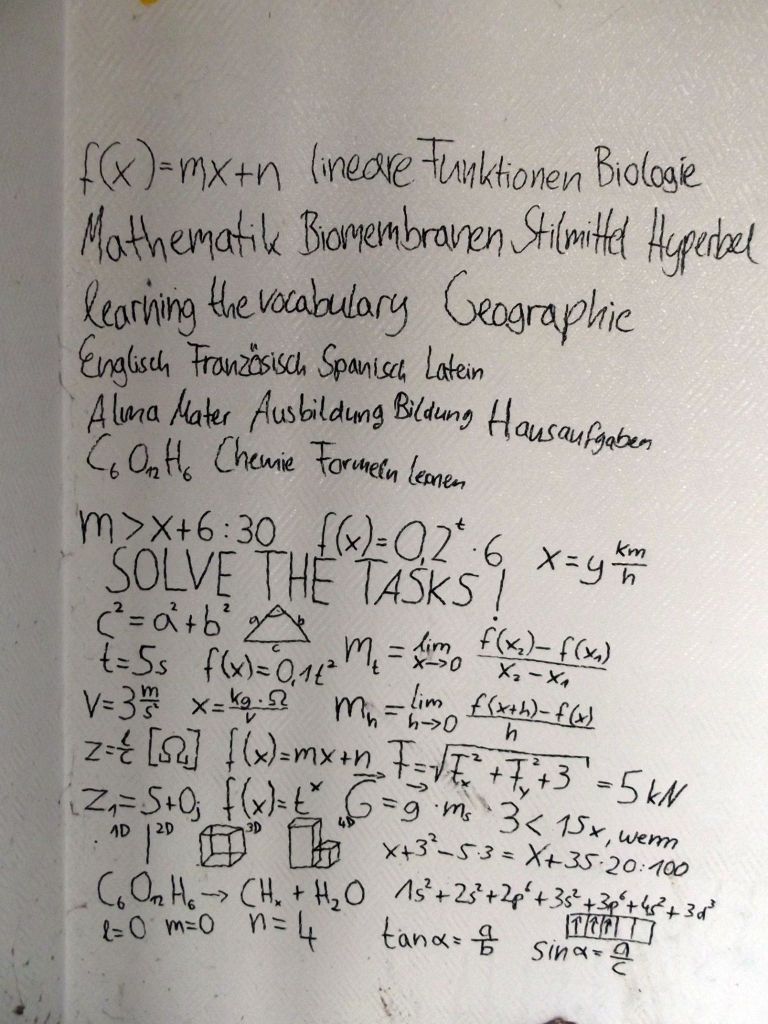 f(x)=mx+n lineare Funktionen Biologie
Mathematik Biomembranen Stilmittel Hyperbel
learning the vocabulary Geographie
Englisch Französisch Spanisch Latein
Alma Mater Ausbildung Bildung Hausaufgaben
C₆O₁₂H₆ Chemie Formeln lernen
m>x+6:30 f(x)=0,2ᵗ·6 x=y km/h
SOLVE THE TASKS!
c²=a²+b² a b c
t=5s f(x)=0,1t² mₜ = lim x→0 f(x₂)-f(x₁)/x₂-x₁
v=3 m/s x= kg·Ω/v mₕ = lim h→0 f(x+h)-f(x)/h
f(x)=mx+n F=√Fₓ²+Fᵧ²+3 = 5kN
Z₁=5+0j f(x)=tˣ G=g·mₛ 3<15x, wenn
1D 2D 3D 4D x+3²-5·3=x+35·20:100
C₆O₁₂H₆→CHₓ+H₂O 1s²+2s²+2p⁶+3s²+3p⁶+4s²+3d³
l=0 m=0 n=4 tanα= a/b sinα= a/c